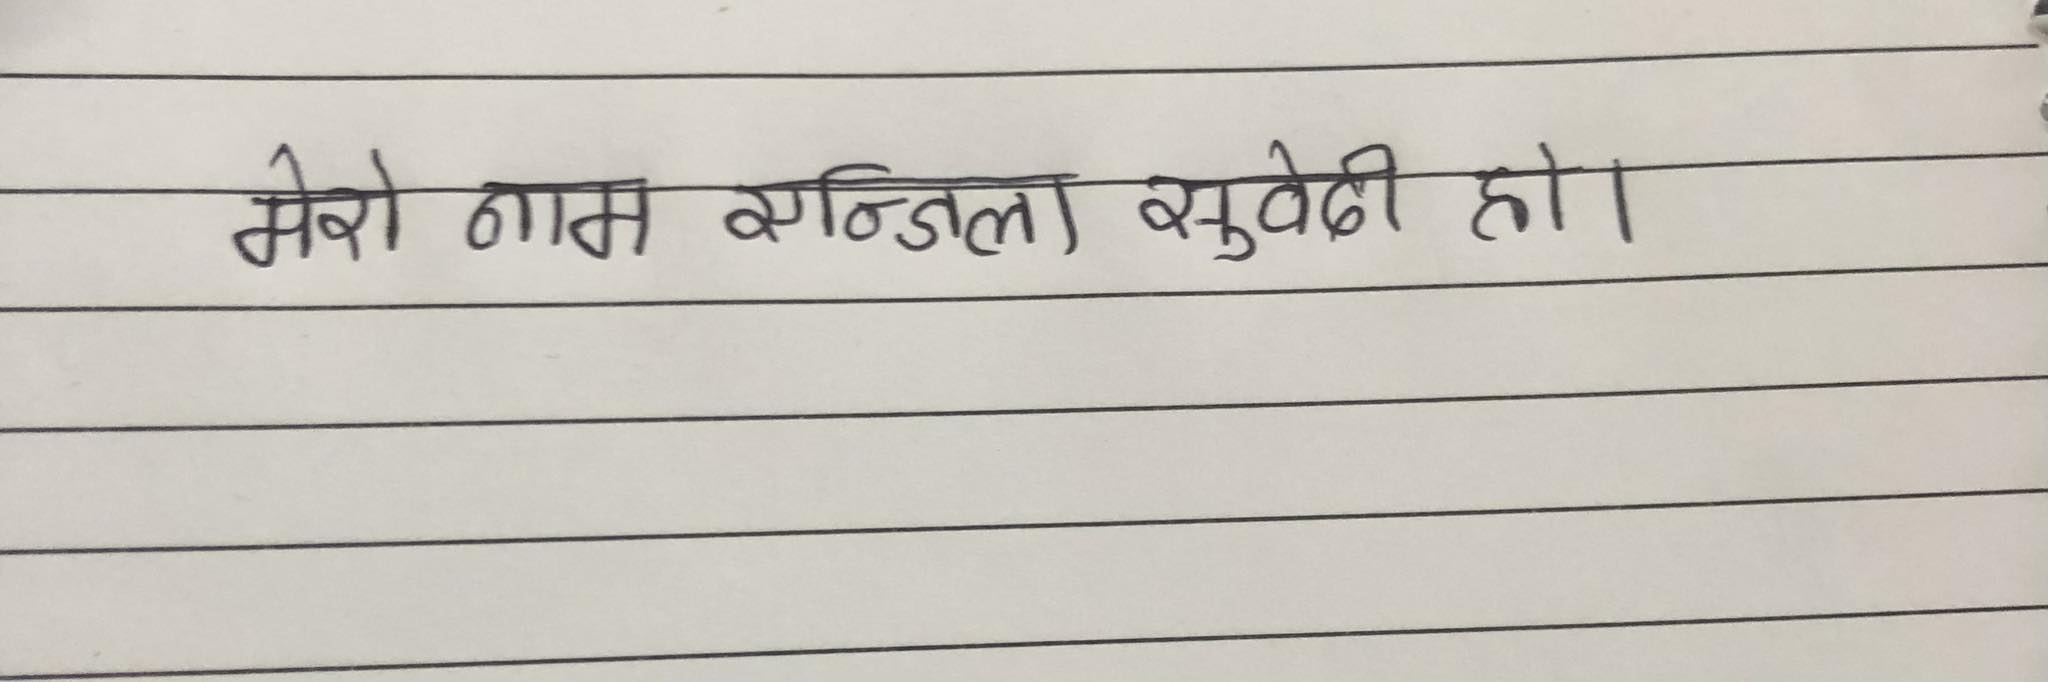 मेरो नाम सन्जिला सुवेदी हो।